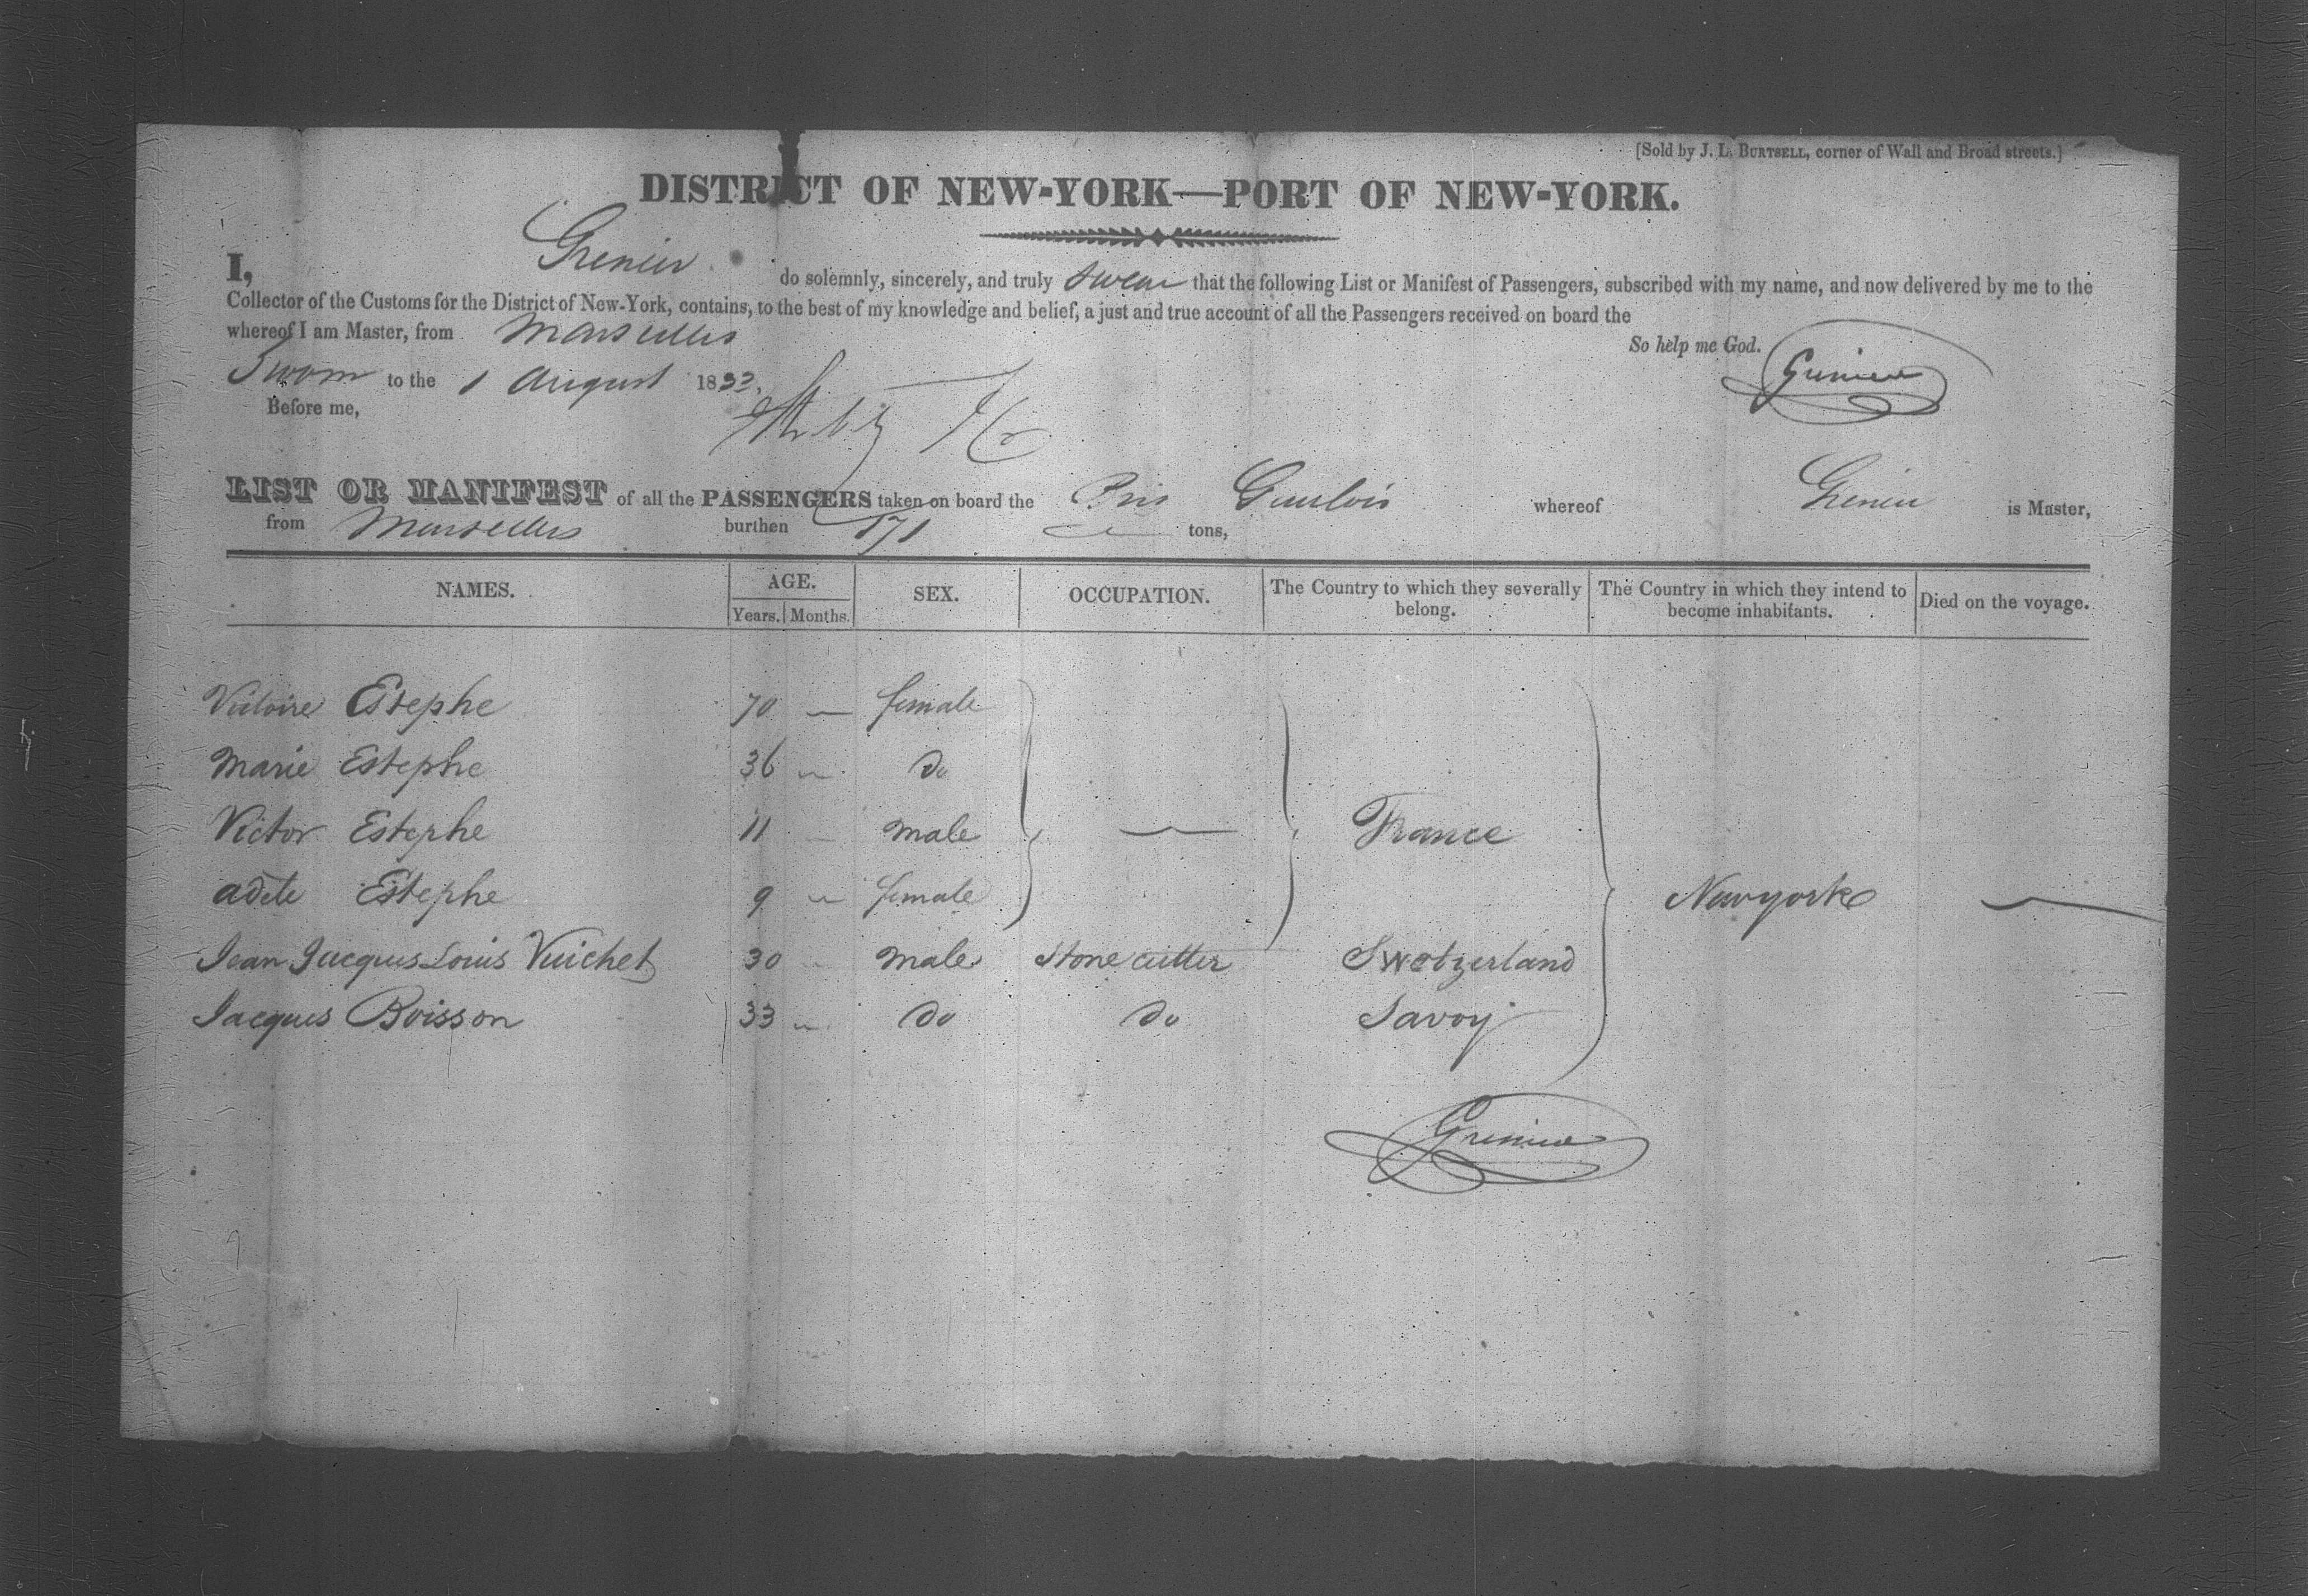 [Sold by J. L. BURTSELL, corner of Wall and Broad streets.]
DISTRICT OF NEW-YORK—PORT OF NEW-YORK.
I, Grenier do solemnly, sincerely, and truly swear that the following List or Manifest of Passengers, subscribed with my name, and now delivered by me to the
Collector of the Customs for the District of New-York, contains, to the best of my knowledge and belief, a just and true account of all the Passengers received on board the
whereof I am Master, from Marseilles
So help me God. Grenier
Sworn to the 1 August 1833.
Before me,
LIST OR MANIFEST of all the PASSENGERS taken on board the Gaulois whereof Grenier is Master,
from Marseilles burthen 171 tons,
NAMES. AGE. SEX. OCCUPATION. The Country to which they severally belong. The Country in which they intend to become inhabitants. Died on the voyage.
Years. Months.
Victoire Estephe 70 — female
Marie Estephe 36 " do
Victor Estephe 11 — male — France
adele Estephe 9 " female Newyork —
Jean Jacques Louis Vuichet 30 male Stone cutter Swetzerland
Jacques Boisson 33 " do do Savoy
Grenier